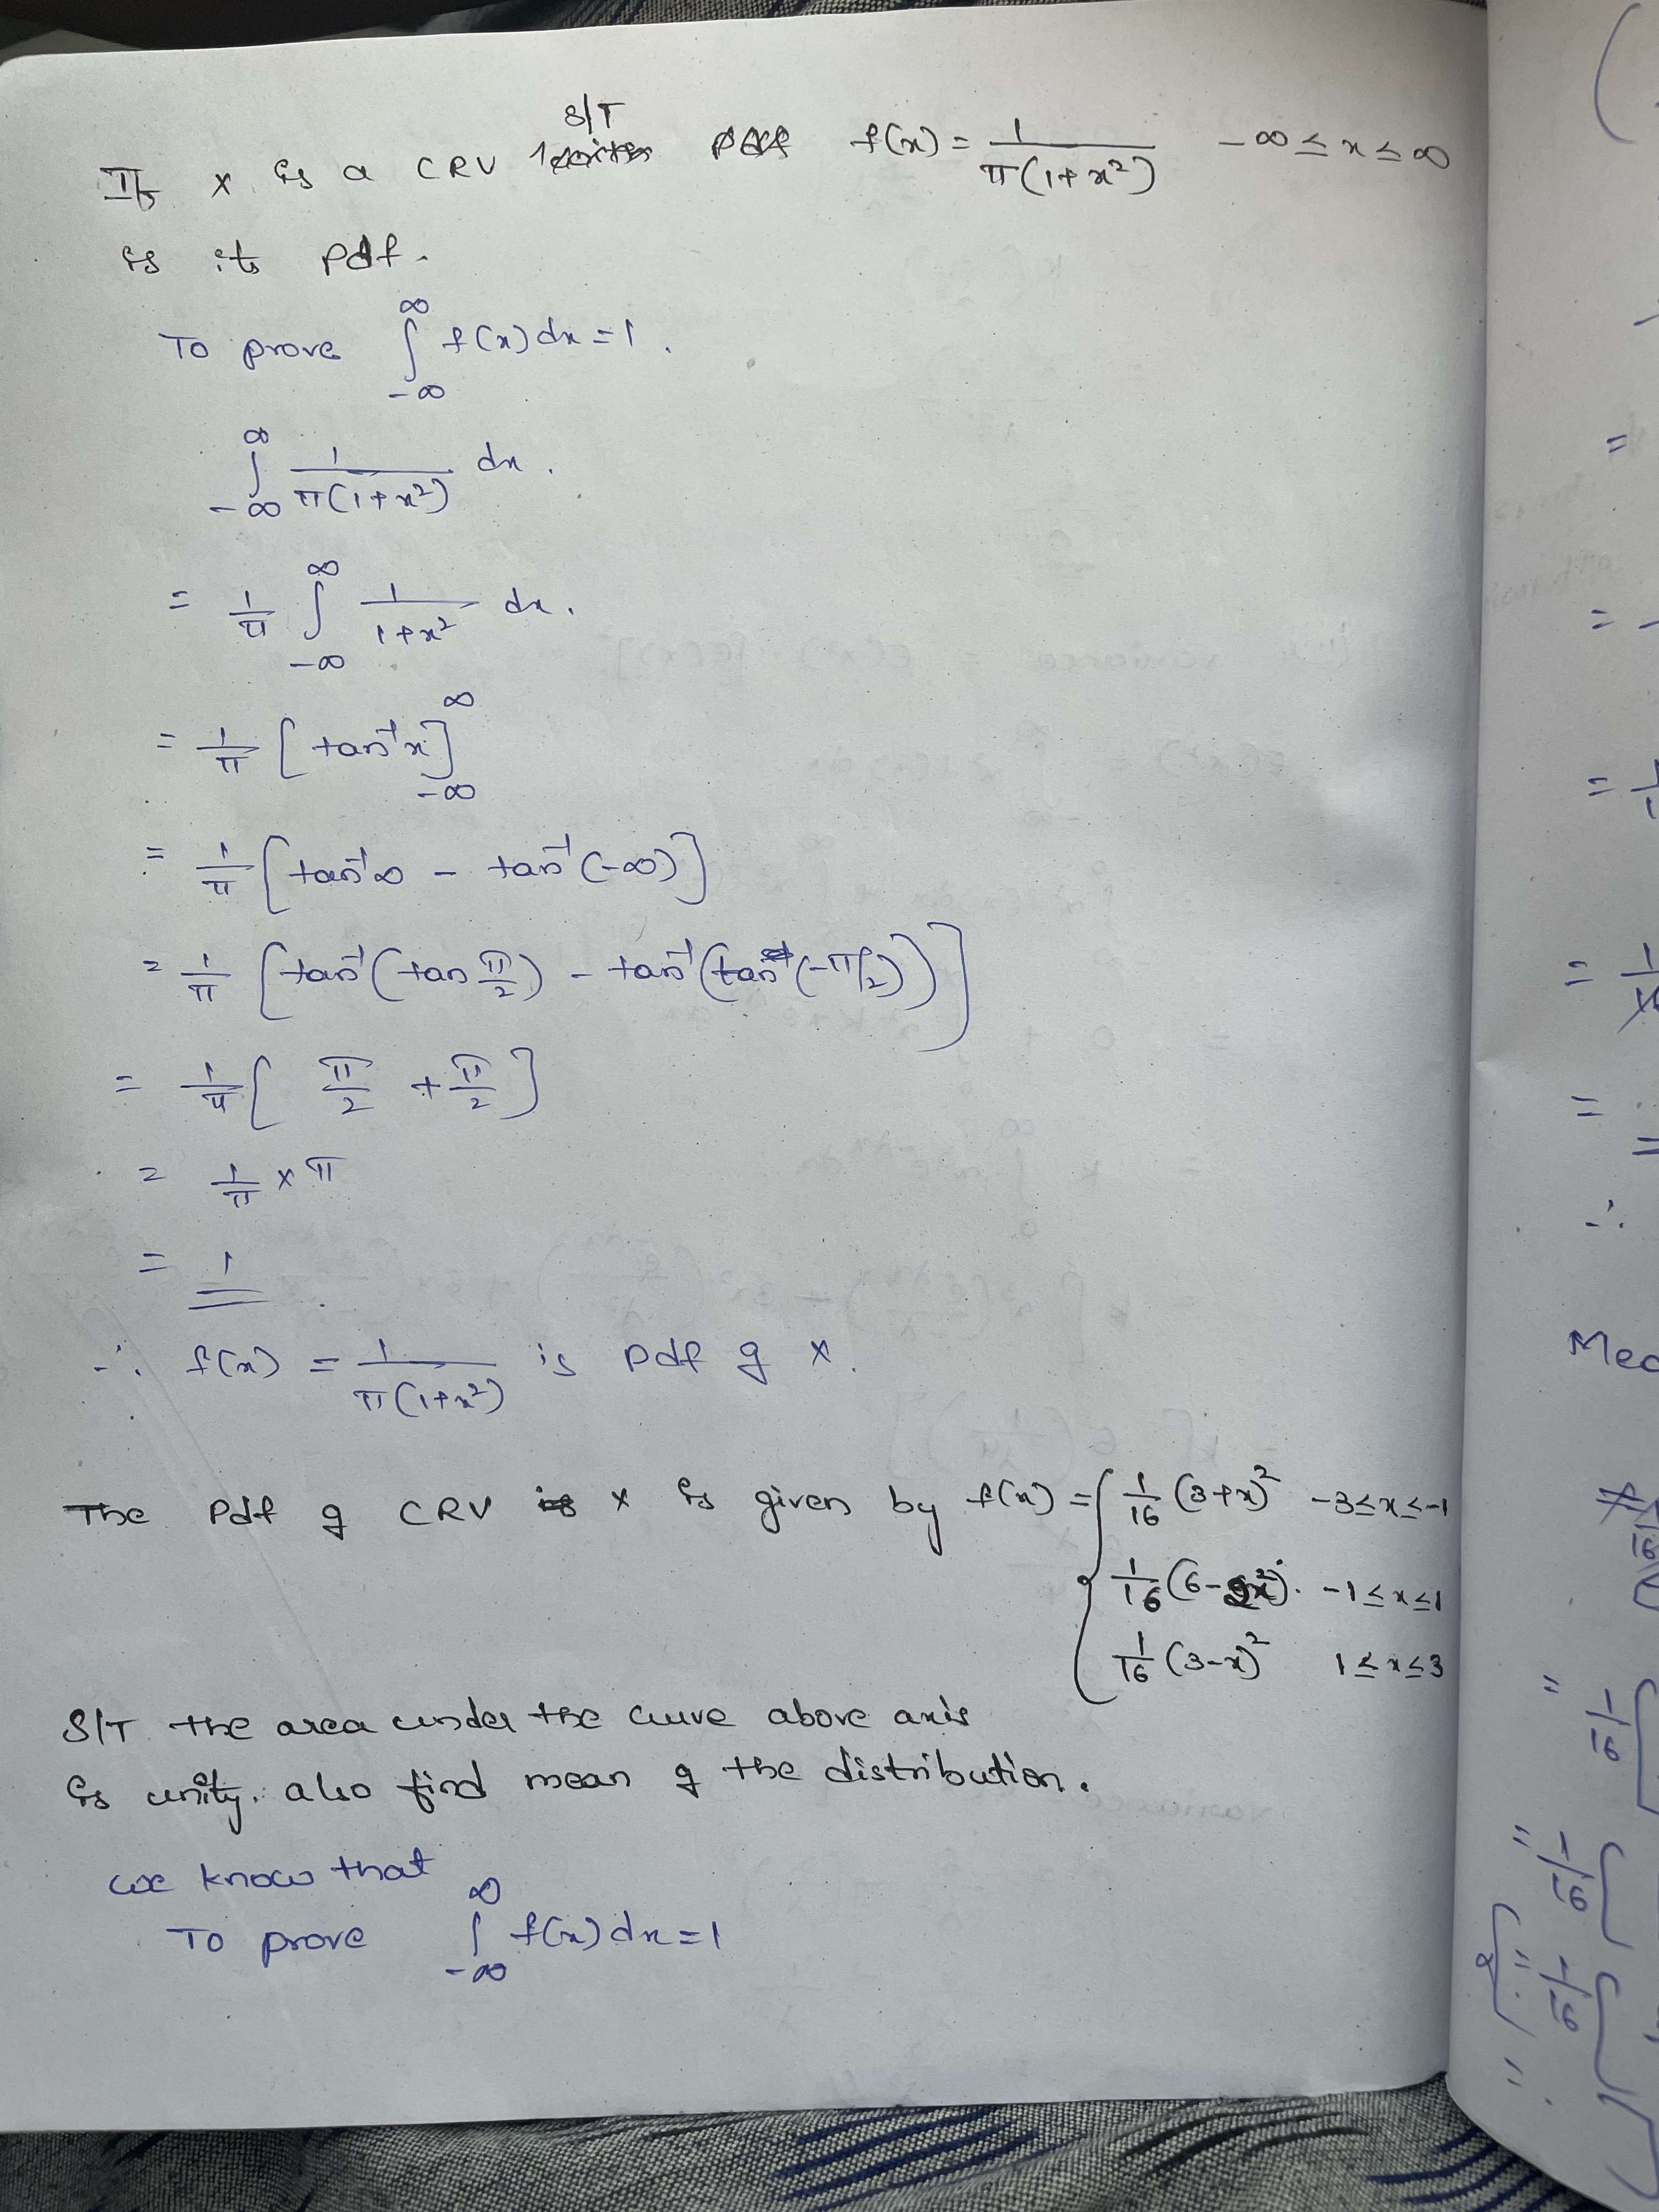 S/T
If x is a CRV f(x) = 1/π(1+x²) -∞ ≤ x ≤ ∞
is its pdf.
To prove ∫_{-∞}^{∞} f(x) dx = 1.
∫_{-∞}^{∞} 1/π(1+x²) dx.
= 1/π ∫_{-∞}^{∞} 1/1+x² dx.
= 1/π [tan⁻¹x]_{-∞}^{∞}
= 1/π [tan⁻¹∞ - tan⁻¹(-∞)]
= 1/π [tan⁻¹(tan π/2) - tan⁻¹(tan(-π/2))]
= 1/π [π/2 + π/2]
= 1/π × π
= 1
∴ f(x) = 1/π(1+x²) is pdf of x.
The pdf of CRV x is given by f(x) = { 1/16 (3+x)² -3≤x≤-1
1/16 (6-2x²). -1≤x≤1
1/16 (3-x)² 1≤x≤3
S/T the area under the curve above axis
is unity. also find mean of the distribution.
we know that
To prove ∫_{-∞}^{∞} f(x) dx = 1